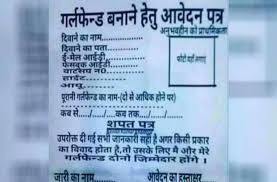 गर्लफेन्ड बनाने हेतु आवेदन पत्र
अनुभवहीन को प्राथमिकता
दिवाने का नाम
दिवाने का पता
ई-मेल आईडी
फेसबुक आईडी
वाटसप नं०
फोटो यहाँ लगाएं
आयु
पुरानी गर्लफेन्ड का नाम (दो से आधिक होने पर)
कब से कब तक
शपत पत्र
उपरोक्त दी गई सभी जानकारी सही है अगर किसी प्रकार
का विवाद होता है, तो उसके लिए मै और मेरे
गर्लफेन्ड दोनों जिम्मेदार होंगे ।
जारी का नाम आवेदन का हस्ताक्षर